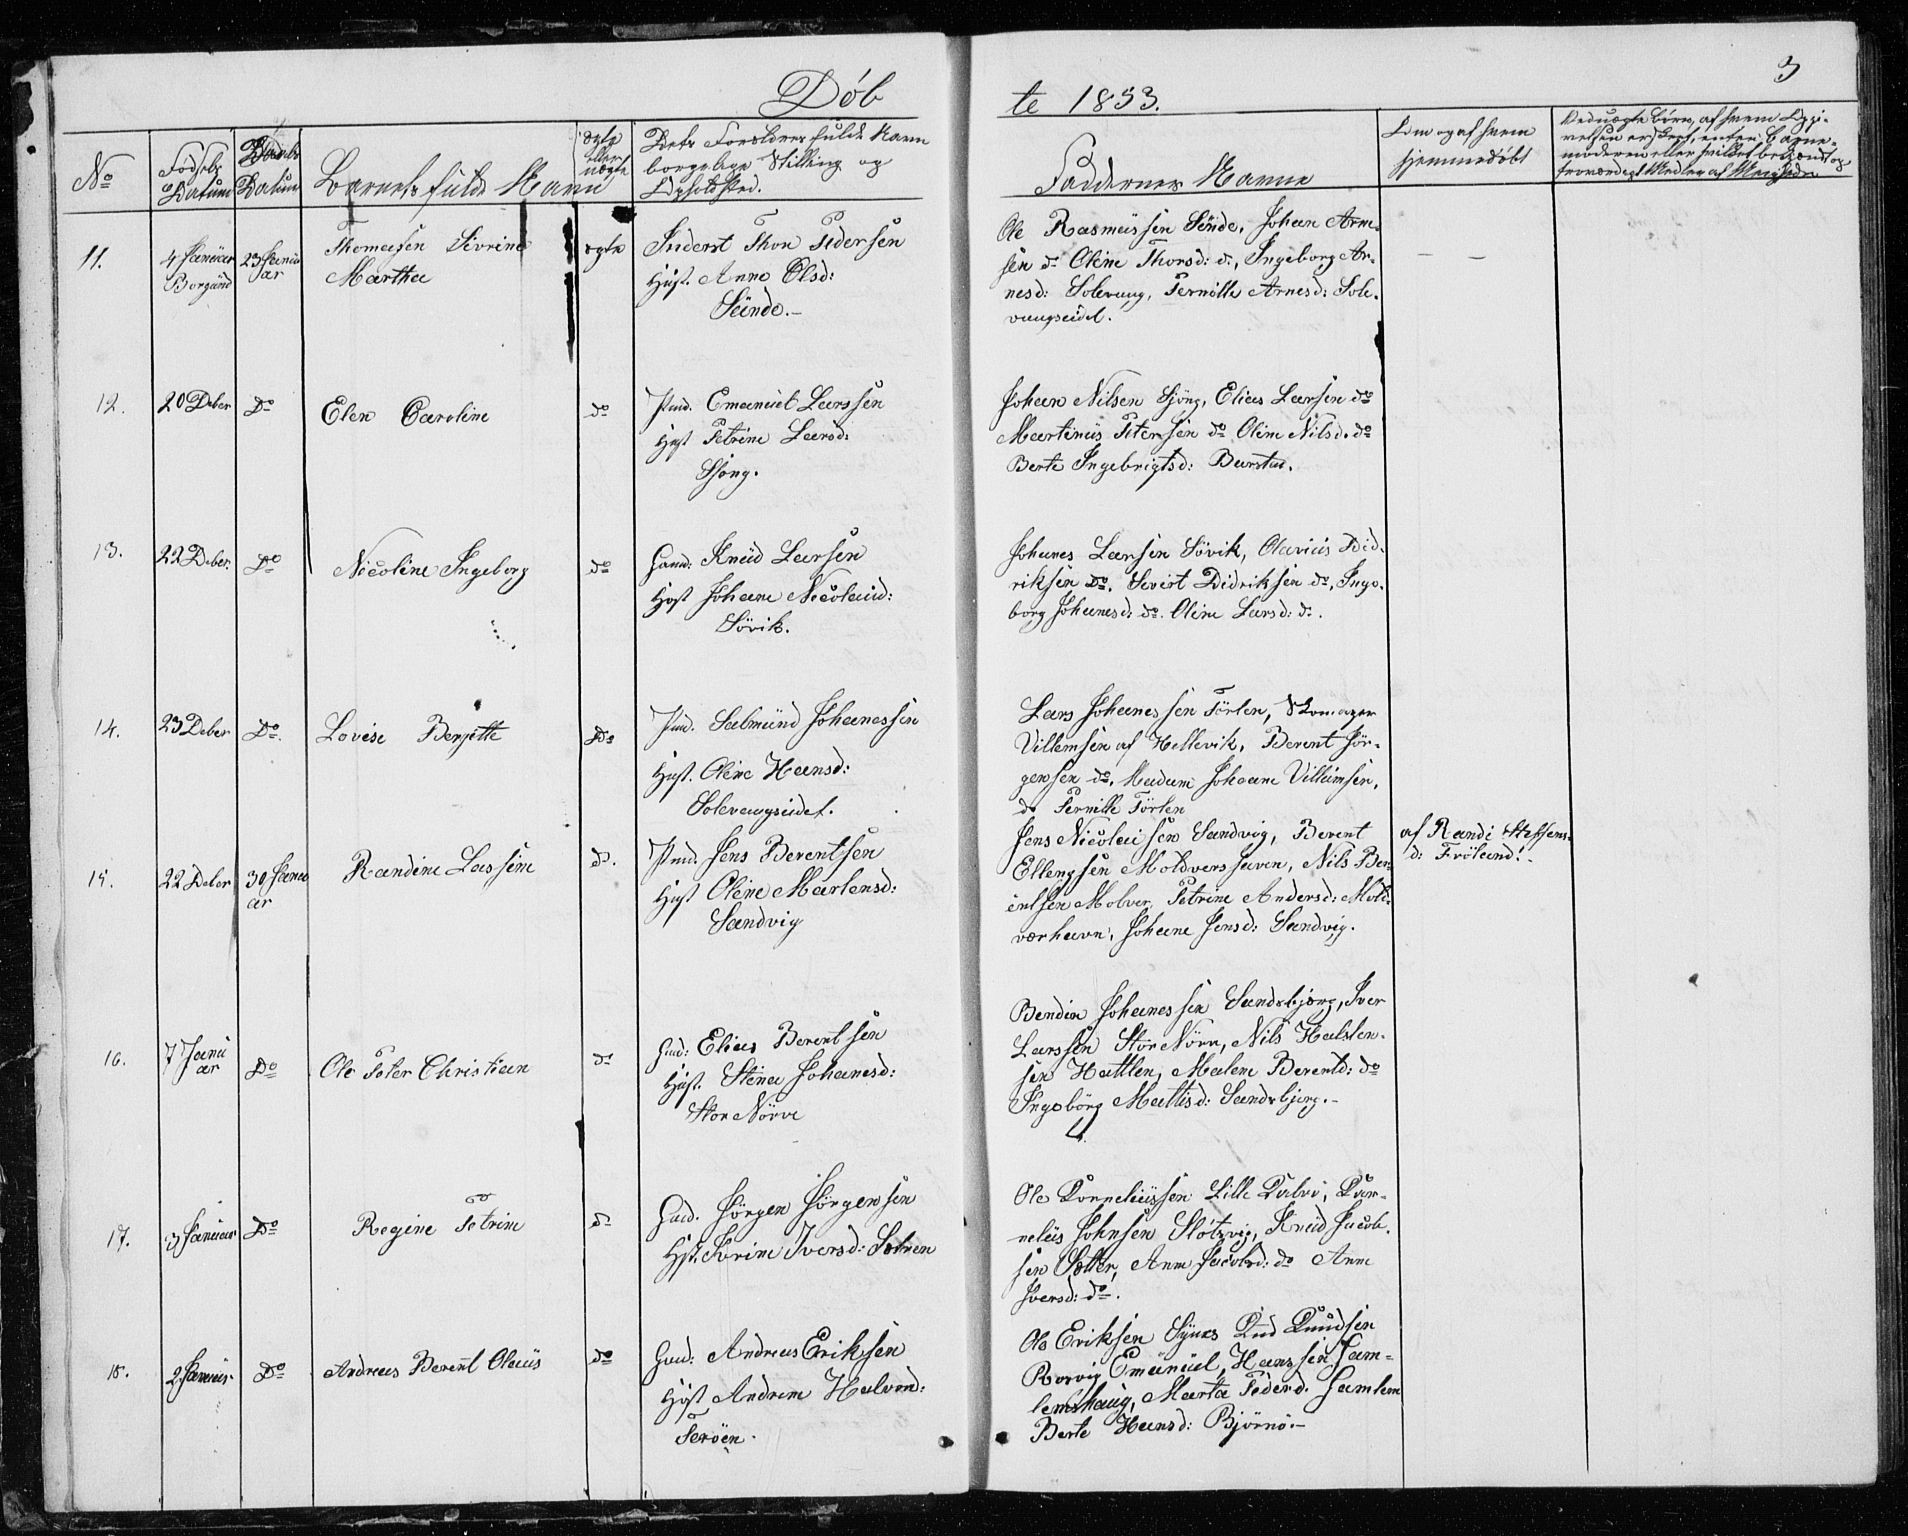 3
Døbte 1853.
No
Fødsels Datum
Daabs Datum
Barnets fulde Navn
ægte eller uægte
Dets Forældres fulde Navn
borgelege Stilling og
Opholdsted.
Faddernes Navne
Om og af hvem
hjemmedøbt
11.
4 Januar
Borgund
23 Janu
ar
Thomasen Sivrine
Marthea
ægte
Inderst Thor Pedersen
Hust. Anne Olsd:
Sunde.-
Ole Rasmussen Sunde, Johan Arne-
sen do Oline Thorsd: do, Ingeborg Ar-
nesd: Solevaag, Pernille Arnesd: Sole-
vaagseidet.
- -
12.
20 Deber
Do
Elen Caroline
do
Pmd. Emanuel Larssen
Hust Petrine Larsd:
Spjong.
Johan Nilsen Spjong, Elias Larsen do
Martinus Petersen do Oline Nilsd. do
Berte Ingebrigtsd: Barstad.
13.
22 Deber.
Do
Nicoline Ingeborg
do
Gaard: Knud Larsen
Hust Johane Nicolaid:
Søvik.
Johanes Larsen Søvik, Olavius Did-
riksen Do. Sivert Didriksen do, Inge-
borg Johanesd: do. Oline Larsd: do.
14.
23 Deber
Do.
Lovise Berjitte
Do
Pmd. Salmund Johanessen
Hust. Oline Hansd:
Solevaagseidet.
Lars Johanessen Førlen, Skomager
Villemsen af Hellevik, Berent Jør-
gensen do. Madam Johane Villumsen,
do Pernille Førlen
15.
22 Deber
30 Janu
ar
Randine Lassine
do.
Pmd. Jens Berentsen
Hust Oline Martensd:
Sandvig
Jens Nicolaisen Sandvig, Berent
Ellengsen Moldvershavn, Nils Ber-
entsen Molver, Petrine Andersd: Mold-
værhavn, Johane Jensd: Sandvig.
af Randi Steffens-
d: Frøland.-
16.
7 Janu
ar
Do
Ole Peter Christian
do
Gmd: Elias Berentsen
Hust. Stina Johanesd:
Stor Nørve
Bendix Johanessen Sandsbjørg, Iver
Larssen Stor Nørve, Nils Halsten-
sen Hattlen, Malene Berentd: do
Ingeborg Mattisd: Sandsbjørg.-
17.
3 Januar
Do
Regine Petrine
do
Gmd. Jørgen Jørgensen
Hst. Karine Iversd: Sætren
Ole Korneliussen Lille Kalvø, Kar-
nelius Johnsen Støtsvig, Knud Jacob-
sen Sætter, Anne Jacobsd: do Anne
Iversd: do.
18.
2 Januar
Do
Andreas Berent Olaus
do
Gmd: Andreas Eriksen
Hust Andrine Halvord:
Terøen.
Ole Eriksen Synes Knud Knudsen
Rørvig Emanuel Hanssen Gam-
lemshaug, Marta Pederd. Gamlem
Berte Hansd: Bjørnø.-